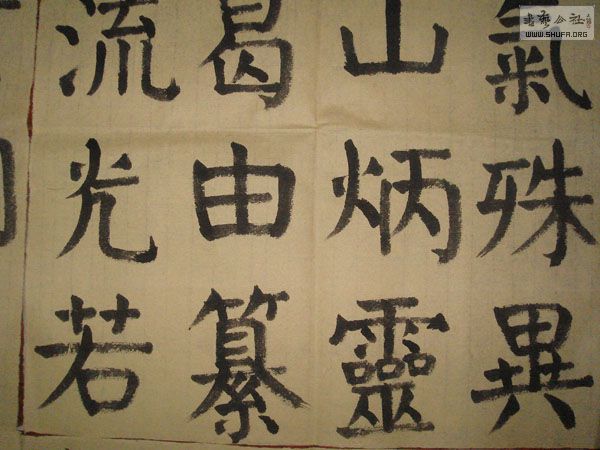 氣殊異
山炳靈
曷由纂
流光若
公社
WWW.SHUFA.ORG